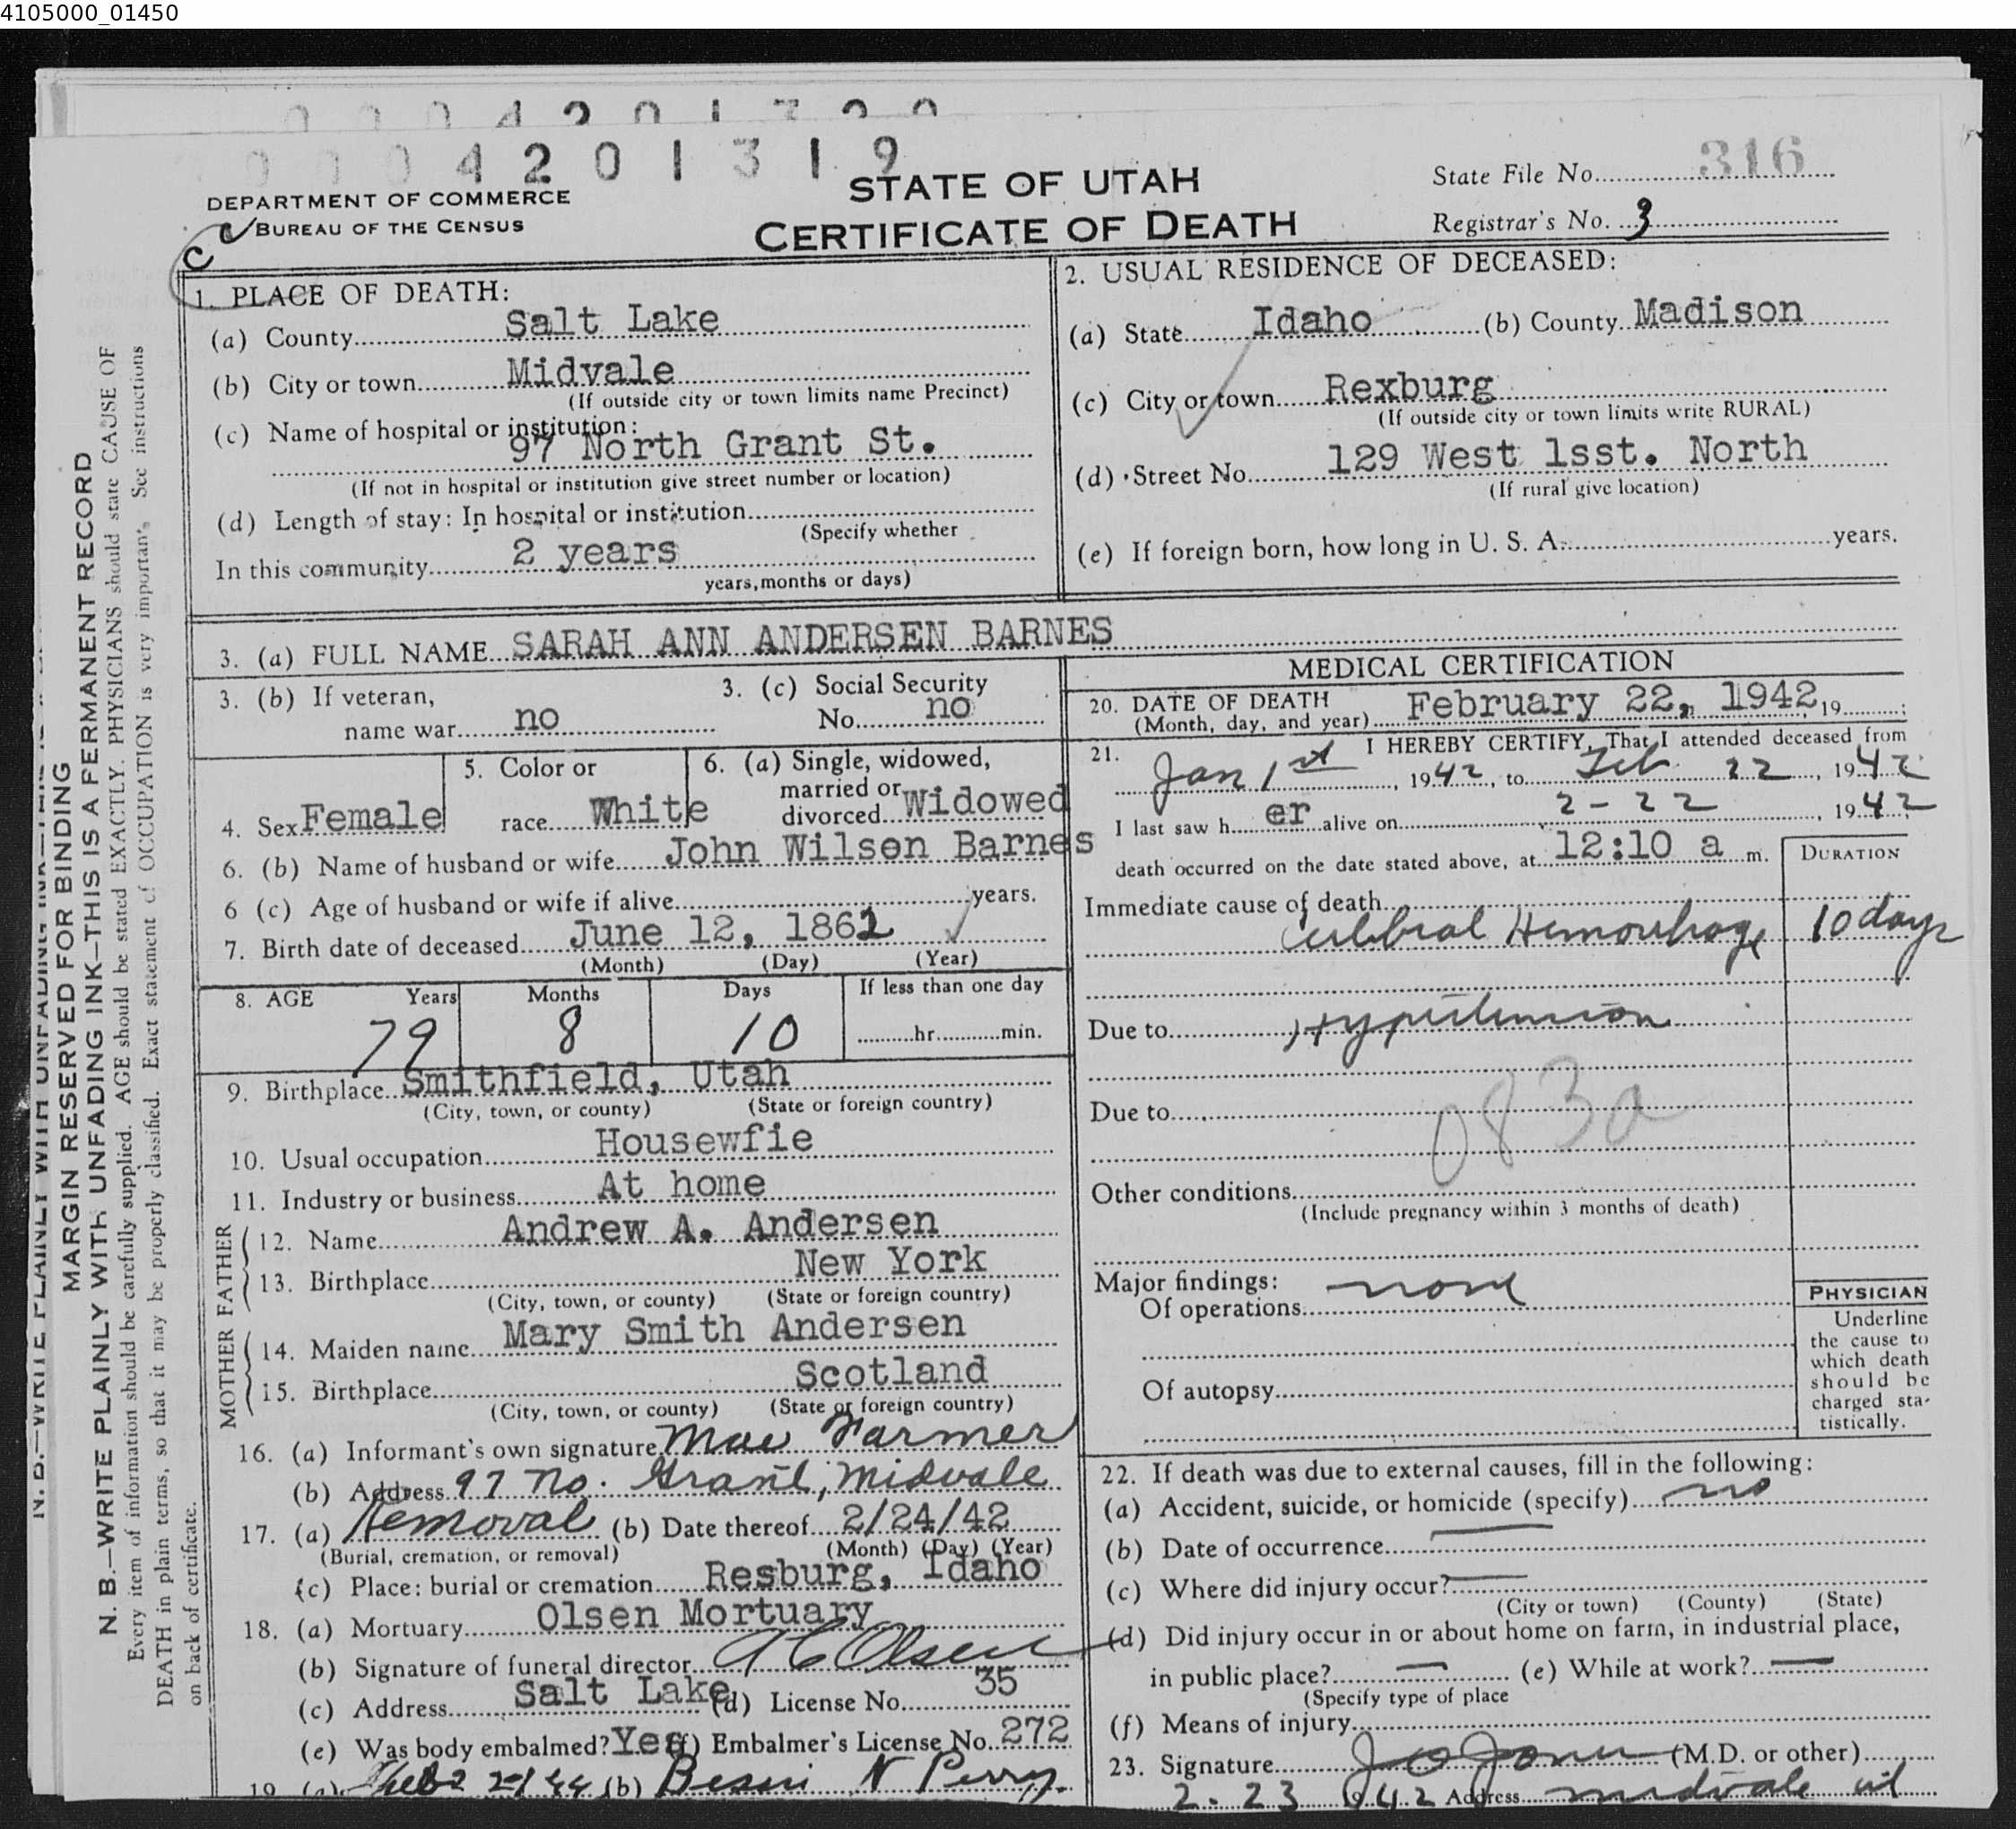 4105000_01450
0 0 0 4 2 0 1 3 1 9
DEPARTMENT OF COMMERCE
BUREAU OF THE CENSUS
STATE OF UTAH
CERTIFICATE OF DEATH
State File No. 316
Registrar's No. 3
1. PLACE OF DEATH:
(a) County Salt Lake
(b) City or town Midvale
(If outside city or town limits name Precinct)
(c) Name of hospital or institution:
97 North Grant St.
(If not in hospital or institution give street number or location)
(d) Length of stay: In hospital or institution
(Specify whether
In this community 2 years
years, months or days)
2. USUAL RESIDENCE OF DECEASED:
(a) State Idaho (b) County Madison
(c) City or town Rexburg
(If outside city or town limits write RURAL)
(d) Street No. 129 West 1sst. North
(If rural give location)
(e) If foreign born, how long in U. S. A. years.
3. (a) FULL NAME SARAH ANN ANDERSEN BARNES
3. (b) If veteran,
name war no
3. (c) Social Security
No. no
4. Sex Female
5. Color or
race White
6. (a) Single, widowed,
married or
divorced Widowed
6. (b) Name of husband or wife John Wilson Barnes
6 (c) Age of husband or wife if alive years.
7. Birth date of deceased June 12, 1862
(Month) (Day) (Year)
8. AGE Years Months Days If less than one day
79 8 10 hr. min.
9. Birthplace Smithfield, Utah
(City, town, or county) (State or foreign country)
10. Usual occupation Housewfie
11. Industry or business At home
FATHER
12. Name Andrew A. Andersen
13. Birthplace New York
(City, town, or county) (State or foreign country)
MOTHER
14. Maiden name Mary Smith Andersen
15. Birthplace Scotland
(City, town, or county) (State or foreign country)
16. (a) Informant's own signature Mae Farmer
(b) Address 97 No. Grant, Midvale
17. (a) Removal (b) Date thereof 2/24/42
(Burial, cremation, or removal) (Month) (Day) (Year)
(c) Place: burial or cremation Resburg, Idaho
18. (a) Mortuary Olsen Mortuary
(b) Signature of funeral director Olsen
(c) Address Salt Lake (d) License No. 35
(e) Was body embalmed? Yes (f) Embalmer's License No. 272
19 (a) Feb (b) N Perry
MEDICAL CERTIFICATION
20. DATE OF DEATH
(Month, day, and year) February 22, 1942, 19
21. I HEREBY CERTIFY, That I attended deceased from
Jan 1st, 1942, to Feb 22, 1942
I last saw her alive on 2-22, 1942
death occurred on the date stated above, at 12:10 a m.
DURATION
Immediate cause of death
Cerebral Hemorrhage 10 days
Due to Hypertension
Due to
083a
Other conditions
(Include pregnancy within 3 months of death)
Major findings:
Of operations none
Of autopsy
PHYSICIAN
Underline
the cause to
which death
should be
charged sta-
tistically.
22. If death was due to external causes, fill in the following:
(a) Accident, suicide, or homicide (specify) no
(b) Date of occurrence
(c) Where did injury occur?
(City or town) (County) (State)
(d) Did injury occur in or about home on farm, in industrial place,
in public place? (e) While at work?
(Specify type of place
(f) Means of injury
23. Signature J O Jones (M.D. or other)
2.23 1942 Address Midvale Ut
MARGIN RESERVED FOR BINDING
N. B.—WRITE PLAINLY WITH UNFADING INK—THIS IS A PERMANENT RECORD
Every item of information should be carefully supplied. AGE should be stated EXACTLY. PHYSICIANS should state CAUSE OF
DEATH in plain terms, so that it may be properly classified. Exact statement of OCCUPATION is very important. See instructions
on back of certificate.